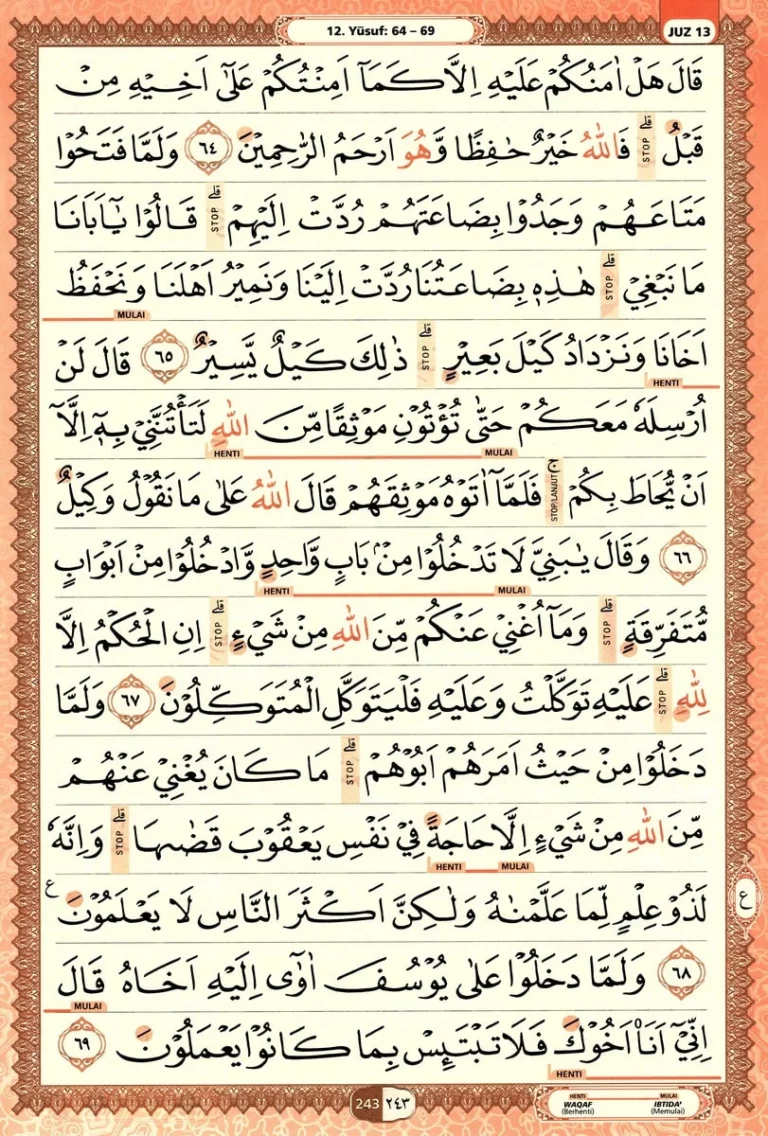 12. Yūsuf: 64 – 69
JUZ 13
قَالَ هَلْ اٰمَنُكُمْ عَلَيْهِ اِلَّا كَمَآ اَمِنْتُكُمْ عَلٰٓى اَخِيْهِ مِنْ
قَبْلُۗ STOP فَاللّٰهُ خَيْرٌ حٰفِظًا وَّهُوَ اَرْحَمُ الرّٰحِمِيْنَ ٦٤ وَلَمَّا فَتَحُوْا
مَتَاعَهُمْ وَجَدُوْا بِضَاعَتَهُمْ رُدَّتْ اِلَيْهِمْۗ STOP قَالُوْا يٰٓاَبَانَا
مَا نَبْغِيْۗ STOP هٰذِهٖ بِضَاعَتُنَا رُدَّتْ اِلَيْنَا وَنَمِيْرُ اَهْلَنَا وَنَحْفَظُ
MULAI
اَخَانَا وَنَزْدَادُ كَيْلَ بَعِيْرٍۗ STOP ذٰلِكَ كَيْلٌ يَّسِيْرٌ ٦٥ قَالَ لَنْ
HENTI
اُرْسِلَهٗ مَعَكُمْ حَتّٰى تُؤْتُوْنِ مَوْثِقًا مِّنَ اللّٰهِ لَتَأْتُنَّنِيْ بِهٖٓ اِلَّآ
MULAI HENTI
اَنْ يُّحَاطَ بِكُمْۚ STOP/LANJUT فَلَمَّآ اٰتَوْهُ مَوْثِقَهُمْ قَالَ اللّٰهُ عَلٰى مَا نَقُوْلُ وَكِيْلٌ
٦٦ وَقَالَ يٰبَنِيَّ لَا تَدْخُلُوْا مِنْۢ بَابٍ وَّاحِدٍ وَّادْخُلُوْا مِنْ اَبْوَابٍ
MULAI HENTI
مُّتَفَرِّقَةٍۗ STOP وَمَآ اُغْنِيْ عَنْكُمْ مِّنَ اللّٰهِ مِنْ شَيْءٍۗ STOP اِنِ الْحُكْمُ اِلَّا
لِلّٰهِۗ STOP عَلَيْهِ تَوَكَّلْتُ وَعَلَيْهِ فَلْيَتَوَكَّلِ الْمُتَوَكِّلُوْنَ ٦٧ وَلَمَّا
دَخَلُوْا مِنْ حَيْثُ اَمَرَهُمْ اَبُوْهُمْۗ STOP مَا كَانَ يُغْنِيْ عَنْهُمْ
مِّنَ اللّٰهِ مِنْ شَيْءٍ اِلَّا حَاجَةً فِيْ نَفْسِ يَعْقُوْبَ قَضٰىهَاۗ STOP وَاِنَّهٗ
MULAI HENTI
لَذُوْ عِلْمٍ لِّمَا عَلَّمْنٰهُ وَلٰكِنَّ اَكْثَرَ النَّاسِ لَا يَعْلَمُوْنَ ع
ع
٦٨ وَلَمَّا دَخَلُوْا عَلٰى يُوْسُفَ اٰوٰٓى اِلَيْهِ اَخَاهُ قَالَ
MULAI
اِنِّيْٓ اَنَا۠ اَخُوْكَ فَلَا تَبْتَىِٕسْ بِمَا كَانُوْا يَعْمَلُوْنَ ٦٩
HENTI
243 ٢٤٣
HENTI WAQAF (Berhenti)
MULAI IBTIDA' (Memulai)